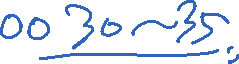 00 30~35,